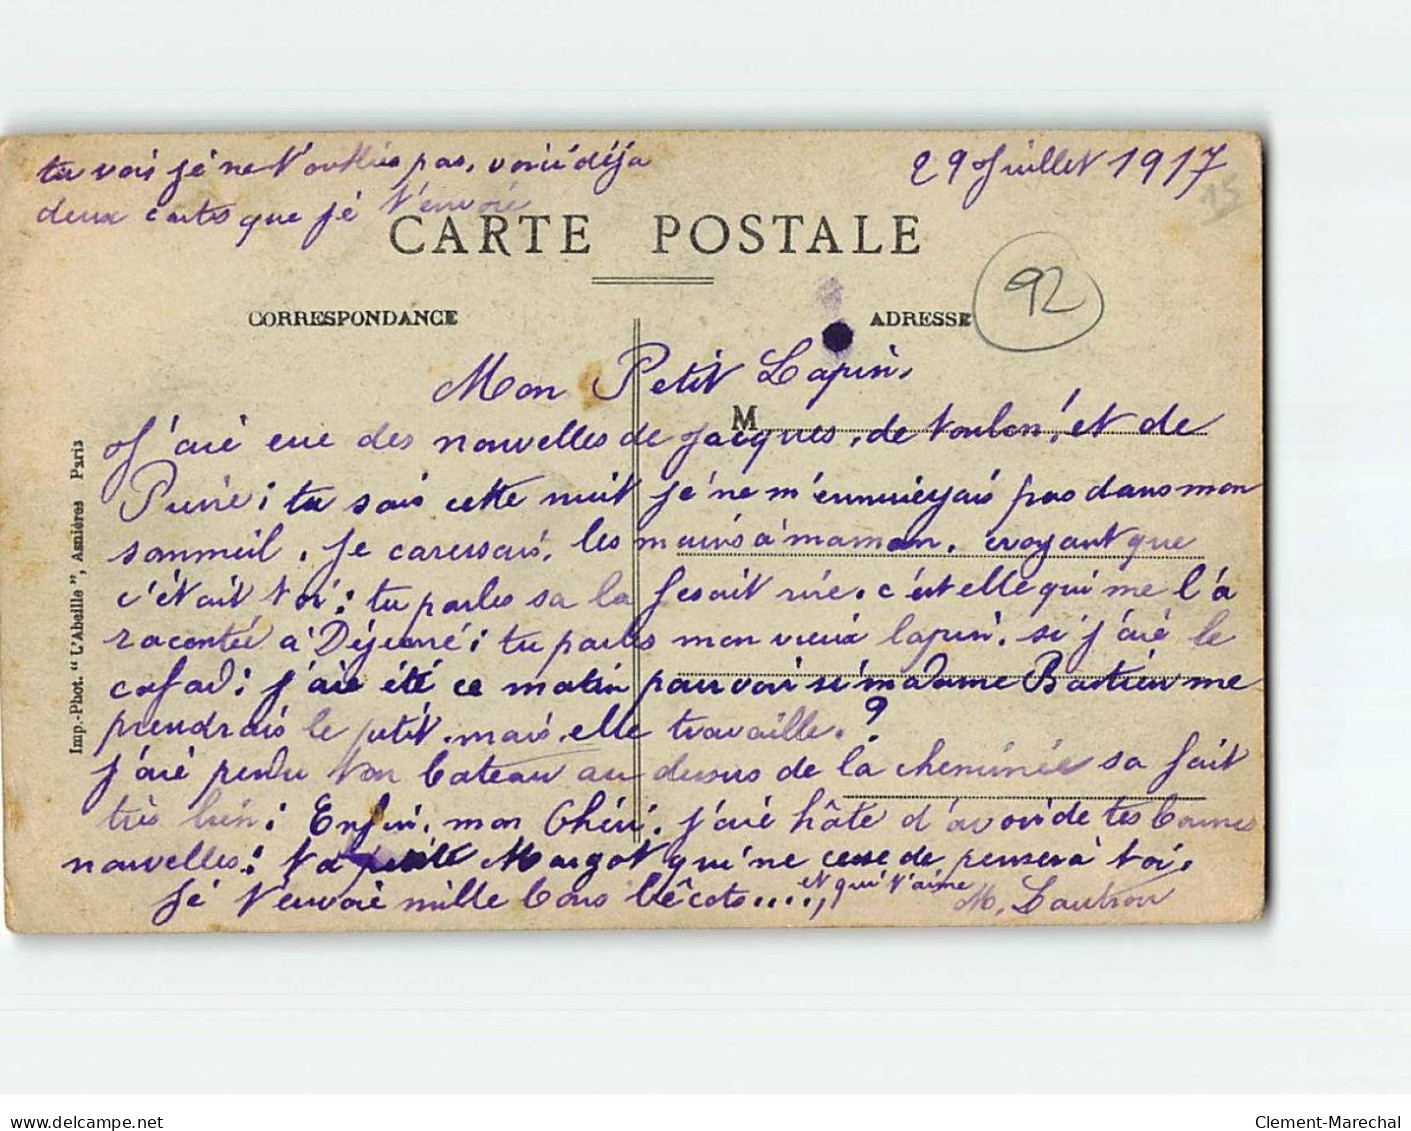 tu vois je ne t'oublie pas, voici déja
deux cartes que je t'envoie
29 Juillet 1917
15
CARTE POSTALE
CORRESPONDANCE
ADRESSE
92
Mon Petit Lapin,
M
J'aie eue des nouvelles de Jacques, de toulon, et de
Pierre; tu sais cette nuit je ne m'ennuieyais pas dans mon
sommeil, je caressais, les mains à maman, croyant que
c'était toi; tu parles sa la fesait rire. c'est elle qui me l'a
racontée a Déjeuné; tu parles mon vieux lapin, si j'aie le
cafad; j'aie été ce matin pour voir si madame Bastien me
prendrais le petit, mais elle travaille.?
j'aie pendu ton bateau au dessus de la cheminée sa fait
très bien; Enfin, mon Chéri, j'aie hâte d'avoir de tes bonnes
nouvelles; ta petite Margot qui ne cesse de penser à toi.
et qui t'aime
Je t'envoie mille bons bécots....,
M. Lautron
Imp.-Phot. "L'Abeille", Asnières Paris
delcampe.net
Clement-Marechal